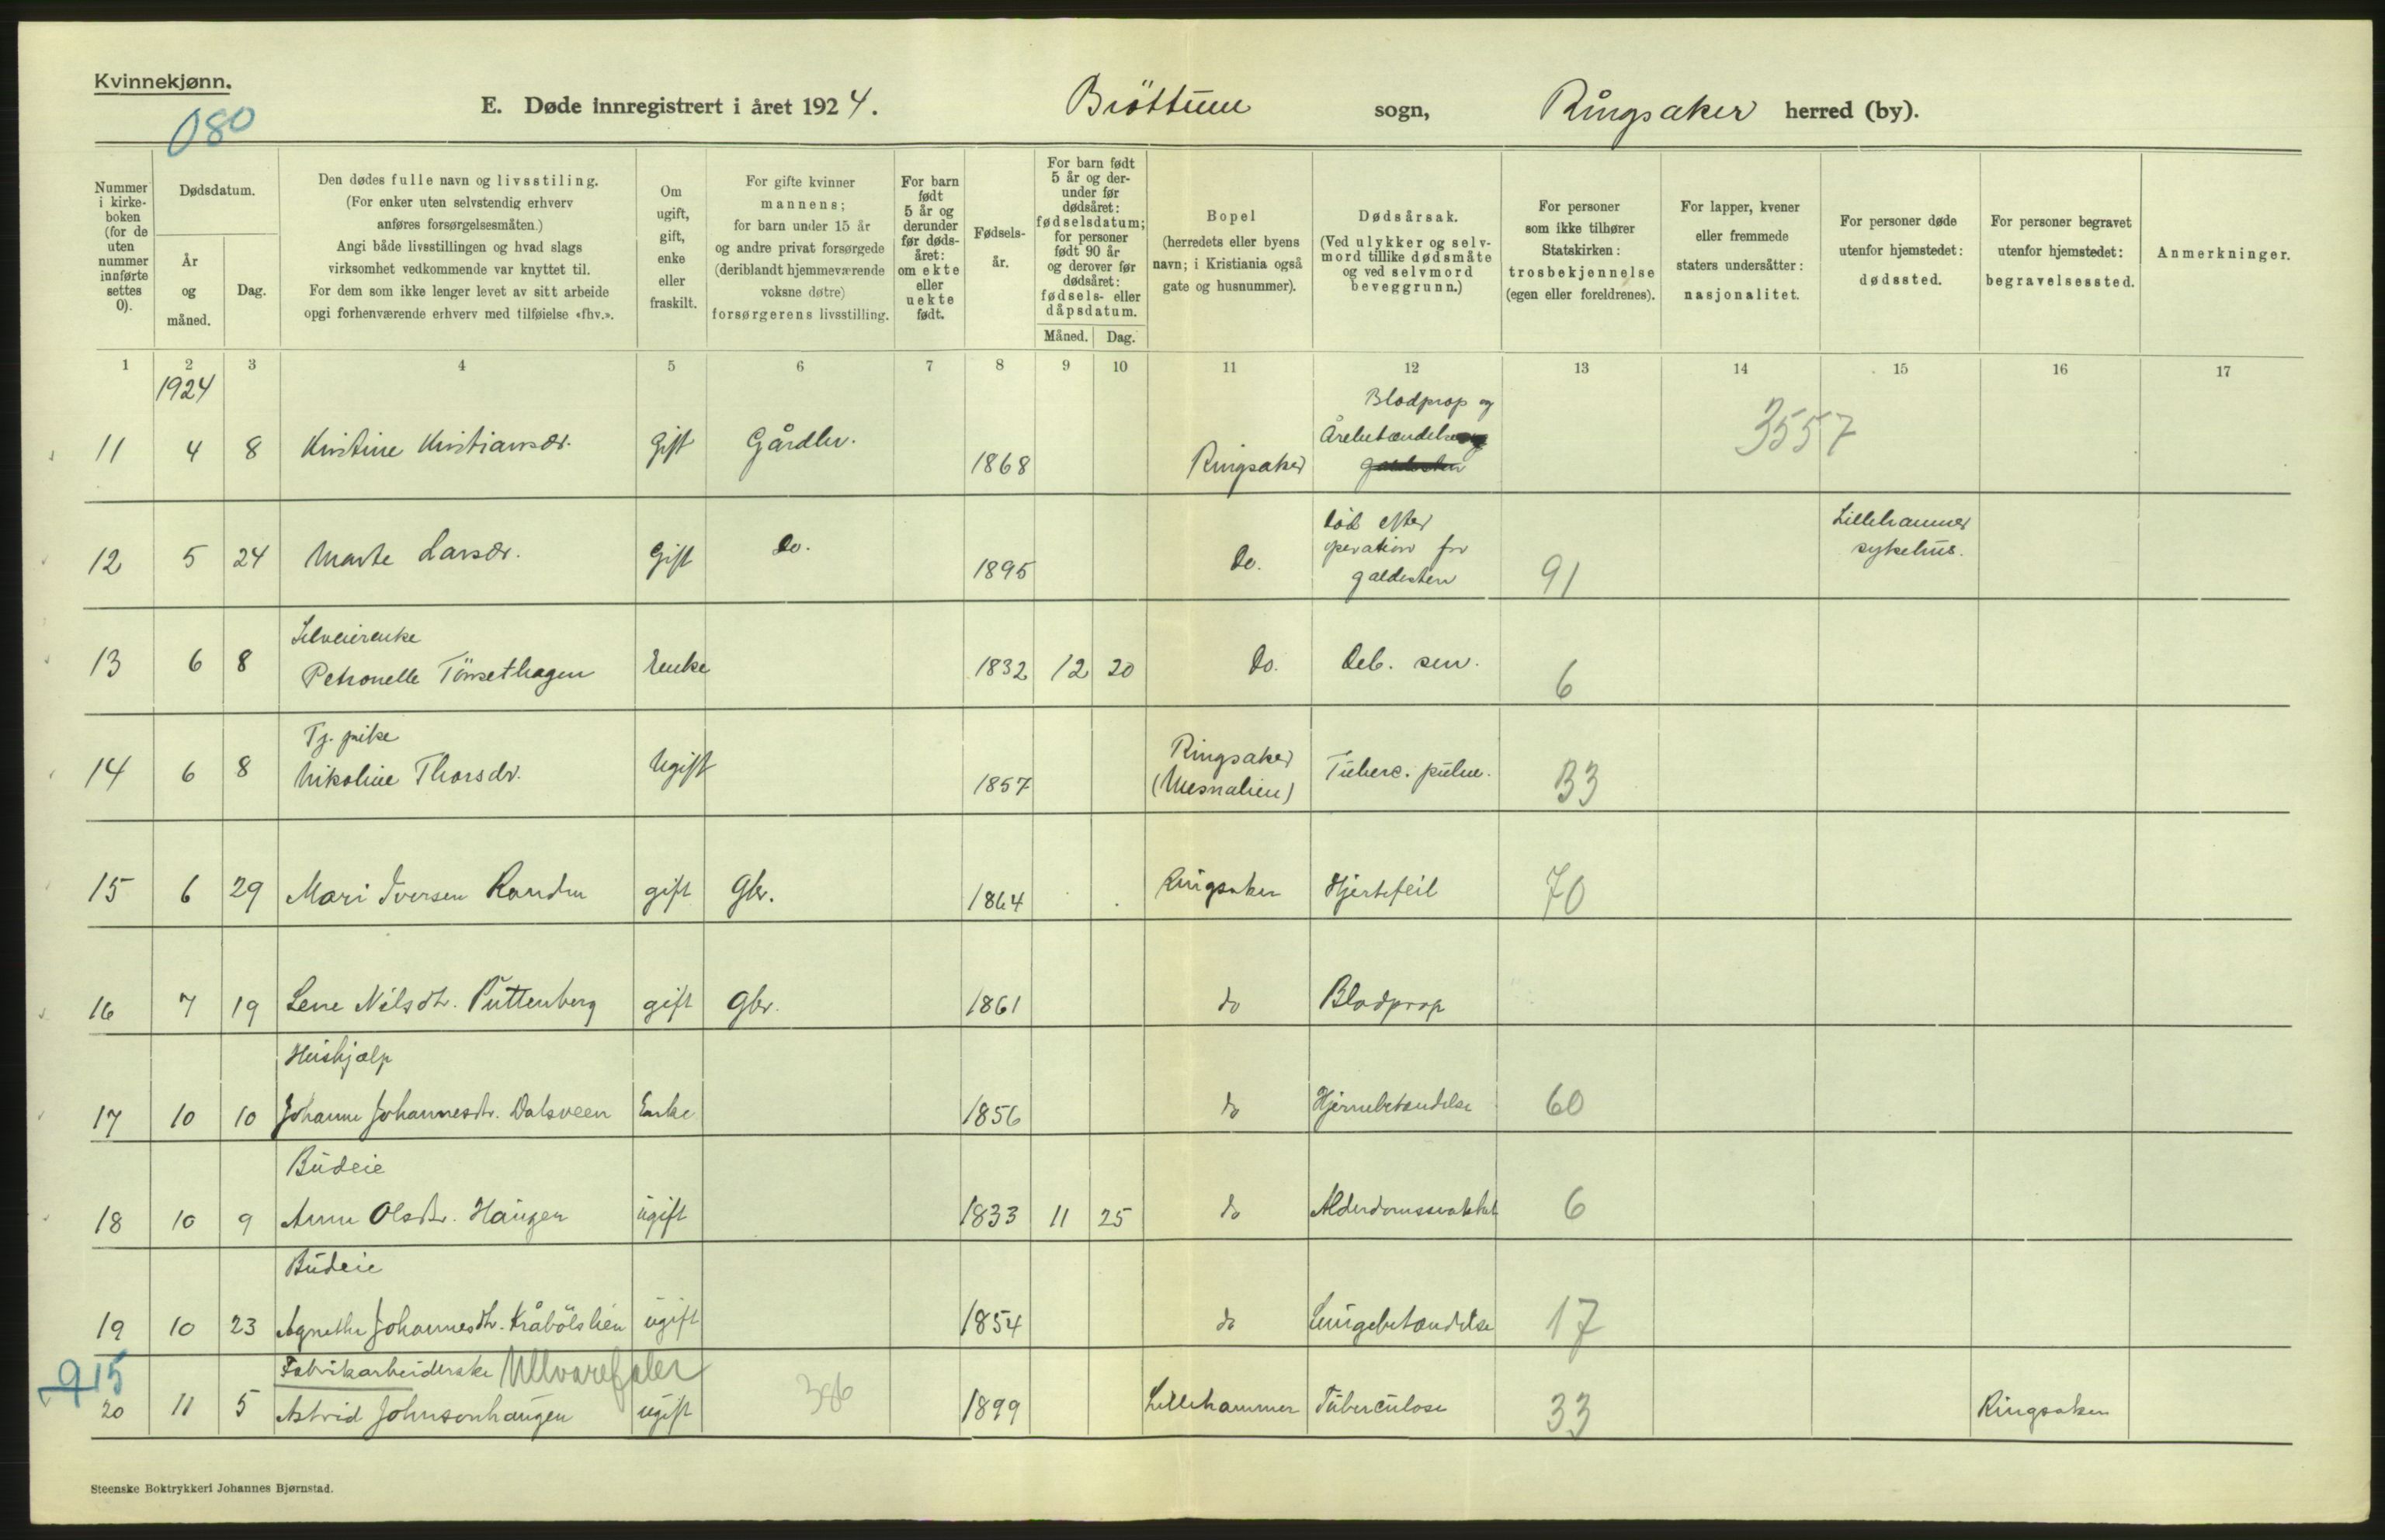 Kvinnekjønn.
080
E. Døde innregistrert i året 1924. Bröttum sogn, Ringsaker herred (by).
Nummer i kirke-boken (for de uten nummer innførte settes 0).
Dødsdatum.
År og måned.
Dag.
Den dødes fulle navn og livsstiling.
(For enker uten selvstendig erhverv
anføres forsørgelsesmåten.)
Angi både livsstillingen og hvad slags
virksomhet vedkommende var knyttet til.
For dem som ikke lenger levet av sitt arbeide
opgi forhenværende erhverv med tilføielse «fhv.».
Om ugift, gift, enke eller fraskilt.
For gifte kvinner
mannens;
for barn under 15 år
og andre privat forsørgede
(deriblandt hjemmeværende
voksne døtre)
forsørgerens livsstilling.
For barn født 5 år og derunder før døds-året: om ekte eller uekte født.
Fødsels-år.
For barn født
5 år og der-
under før
dødsåret:
fødselsdatum;
for personer
født 90 år
og derover før
dødsåret:
fødsels- eller
dåpsdatum.
Måned. Dag.
Bopel
(herredets eller byens
navn; i Kristiania også
gate og husnummer).
Dødsårsak.
(Ved ulykker og selv-
mord tillike dødsmåte
og ved selvmord
beveggrunn.)
For personer
som ikke tilhører
Statskirken:
trosbekjennelse
(egen eller foreldrenes).
For lapper, kvener
eller fremmede
staters undersåtter:
nasjonalitet.
For personer døde
utenfor hjemstedet:
dødssted.
For personer begravet
utenfor hjemstedet:
begravelsessted.
Anmerkninger.
1 2 3 4 5 6 7 8 9 10 11 12 13 14 15 16 17
1924
Blodprop og
11 4 8 Kristine Kristiansdr. Gift Gårdbr. 1868 Ringsaker Årebetændelse 3557
død efter
operation for
galdesten
12 5 24 Marte Larsdr. Gift Do. 1895 Do. 91 Lillehammer
sykehus.
Selveierenke
13 6 8 Petronelle Törrsethagen Enke 1832 12 20 Do. Deb. sen. 6
Tj. pike
14 6 8 Nikoline Thorsdr. Ugift 1857 Ringsaker
(Mesnalien) Tuberc. pulm. 33
15 6 29 Mari Iversen Randen gift Gbr. 1864 Ringsaker Hjertefeil 70
16 7 19 Lene Nilsdtr. Puttenberg gift Gbr. 1861 do Blodprop
Hushjælp
17 10 10 Johanne Johannesdtr. Dalsveen Enke 1856 do Hjernebetændelse 60
Budeie
18 10 9 Anne Olsdtr. Haugen ugift 1833 11 25 do Alderdomssvakhet 6
Budeie
19 10 23 Agnethe Johannesdtr. Kråbölslien ugift 1854 do Lungebetændelse 17
915
Fabrikarbeiderske Ullvarefabr
20 11 5 Astrid Johnsonhaugen ugift 386 1899 Lillehammer Tuberculose 33 Ringsaker
Steenske Boktrykkeri Johannes Bjørnstad.